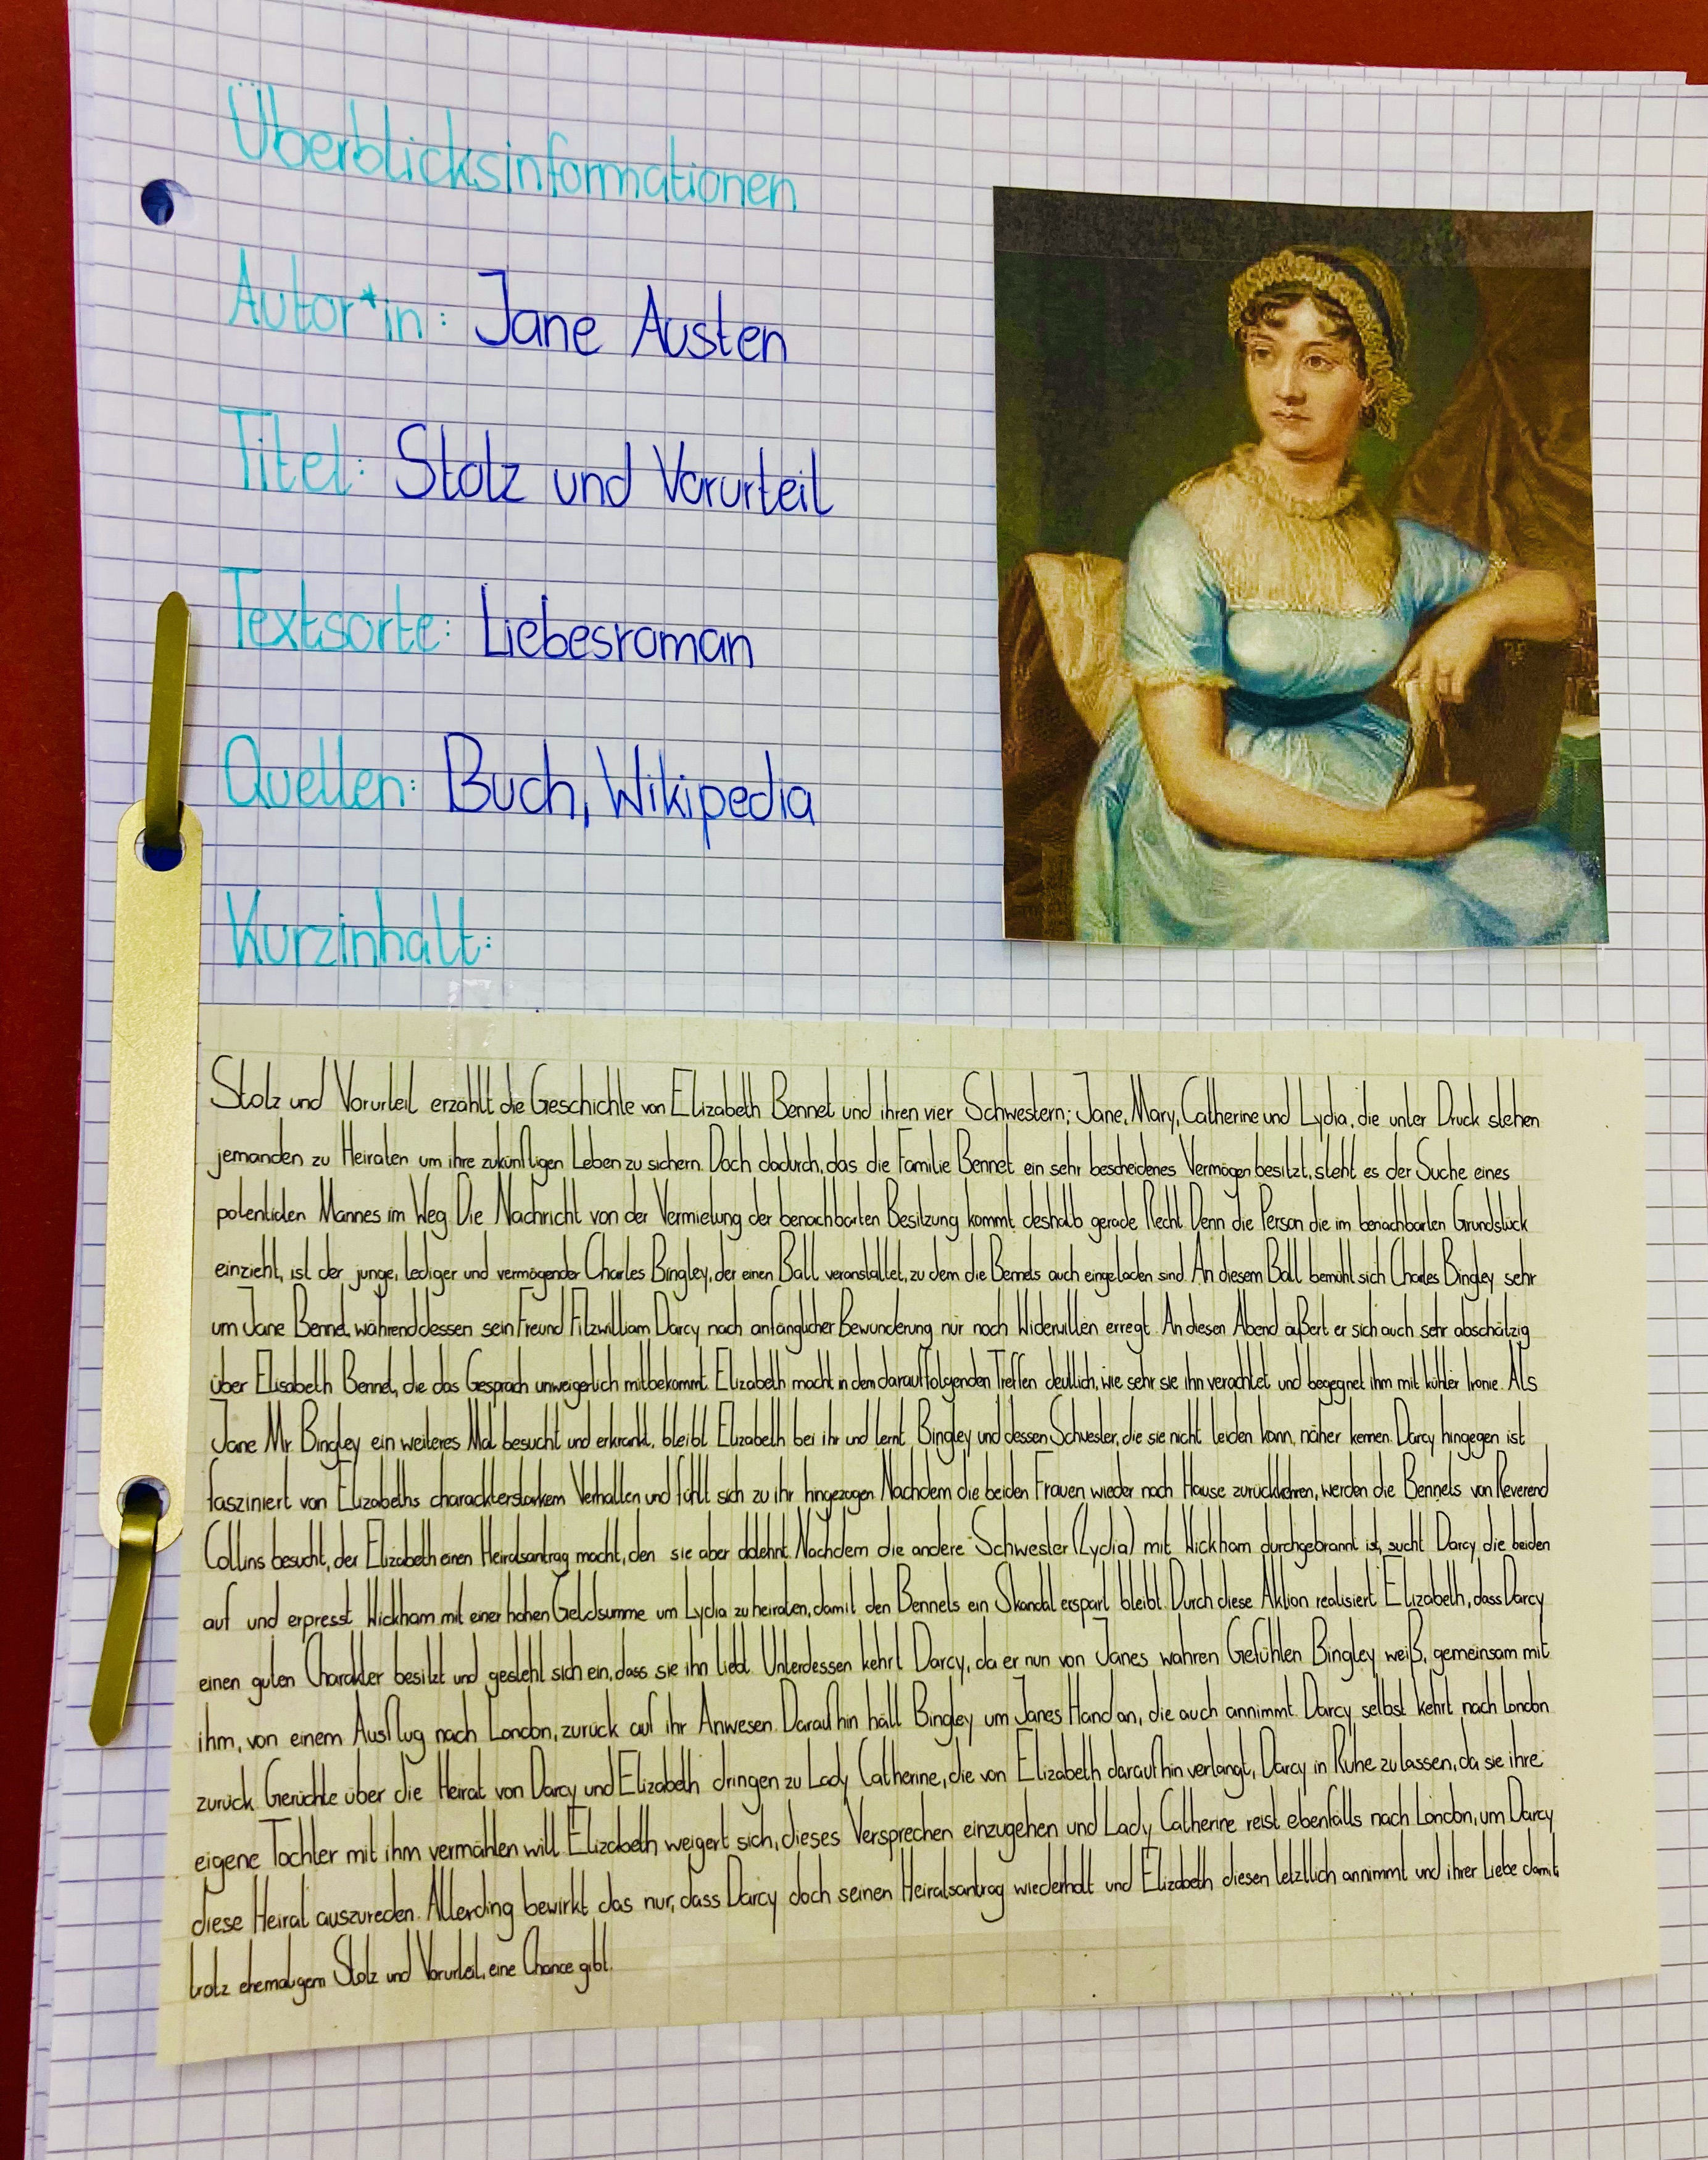 Überblicksinformationen
Autor*in: Jane Austen
Titel: Stolz und Vorurteil
Textsorte: Liebesroman
Quellen: Buch, Wikipedia
Kurzinhalt:
Stolz und Vorurteil erzählt die Geschichte von Elizabeth Bennet und ihren vier Schwestern; Jane, Mary, Catherine und Lydia, die unter Druck stehen
jemanden zu Heiraten um ihre zukünftigen Leben zu sichern. Doch dadurch, das die Familie Bennet ein sehr bescheidenes Vermögen besitzt, steht es der Suche eines
potentiden Mannes im Weg. Die Nachricht von der Vermietung der benachbarten Besitzung kommt deshalb gerade Recht. Denn die Person die im benachbarten Grundstück
einzieht, ist der junge, lediger und vermögender Charles Bingley, der einen Ball veranstaltet, zu dem die Bennets auch eingeladen sind. An diesem Ball bemüht sich Charles Bingley sehr
um Jane Bennet, währenddessen sein Freund Fitzwilliam Darcy nach anfänglicher Bewunderung nur noch Widerwillen erregt. An diesen Abend äußert er sich auch sehr abschätzig
über Elisabeth Bennet, die das Gespräch unweigerlich mitbekommt. Elizabeth macht in dem darauffolgenden Treffen deutlich, wie sehr sie ihn verachtet und begegnet ihm mit kühler Ironie. Als
Jane Mr. Bingley ein weiteres Mal besucht und erkrankt, bleibt Elizabeth bei ihr und lernt Bingley und dessen Schwester, die sie nicht leiden kann, näher kennen. Darcy hingegen ist
fasziniert von Elizabeths charackterstarkem Verhalten und fühlt sich zu ihr hingezogen. Nachdem die beiden Frauen wieder nach Hause zurückkehren, werden die Bennets von Reverend
Collins besucht, der Elizabeth einen Heiratsantrag macht, den sie aber ablehnt. Nachdem die andere Schwester (Lydia) mit Wickham durchgebrannt ist, sucht Darcy die beiden
auf und erpresst Wickham mit einer hohen Geldsumme um Lydia zu heiraten, damit den Bennets ein Skandal erspart bleibt. Durch diese Aktion realisiert Elizabeth, dass Darcy
einen guten Charakter besitzt und gesteht sich ein, dass sie ihn liebt. Unterdessen kehrt Darcy, da er nun von Janes wahren Gefühlen Bingley weiß, gemeinsam mit
ihm, von einem Ausflug nach London, zurück auf ihr Anwesen. Daraufhin hält Bingley um Janes Hand an, die auch annimmt. Darcy selbst kehrt nach London
zurück. Gerüchte über die Heirat von Darcy und Elizabeth dringen zu Lady Catherine, die von Elizabeth daraufhin verlangt, Darcy in Ruhe zu lassen, da sie ihre
eigene Tochter mit ihm vermählen will. Elizabeth weigert sich, dieses Versprechen einzugehen und Lady Catherine reist ebenfalls nach London, um Darcy
diese Heirat auszureden. Allerding bewirkt das nur, dass Darcy doch seinen Heiratsantrag wiederholt und Elizabeth diesen letztlich annimmt und ihrer Liebe damit,
trotz ehemaligem Stolz und Vorurteil, eine Chance gibt.